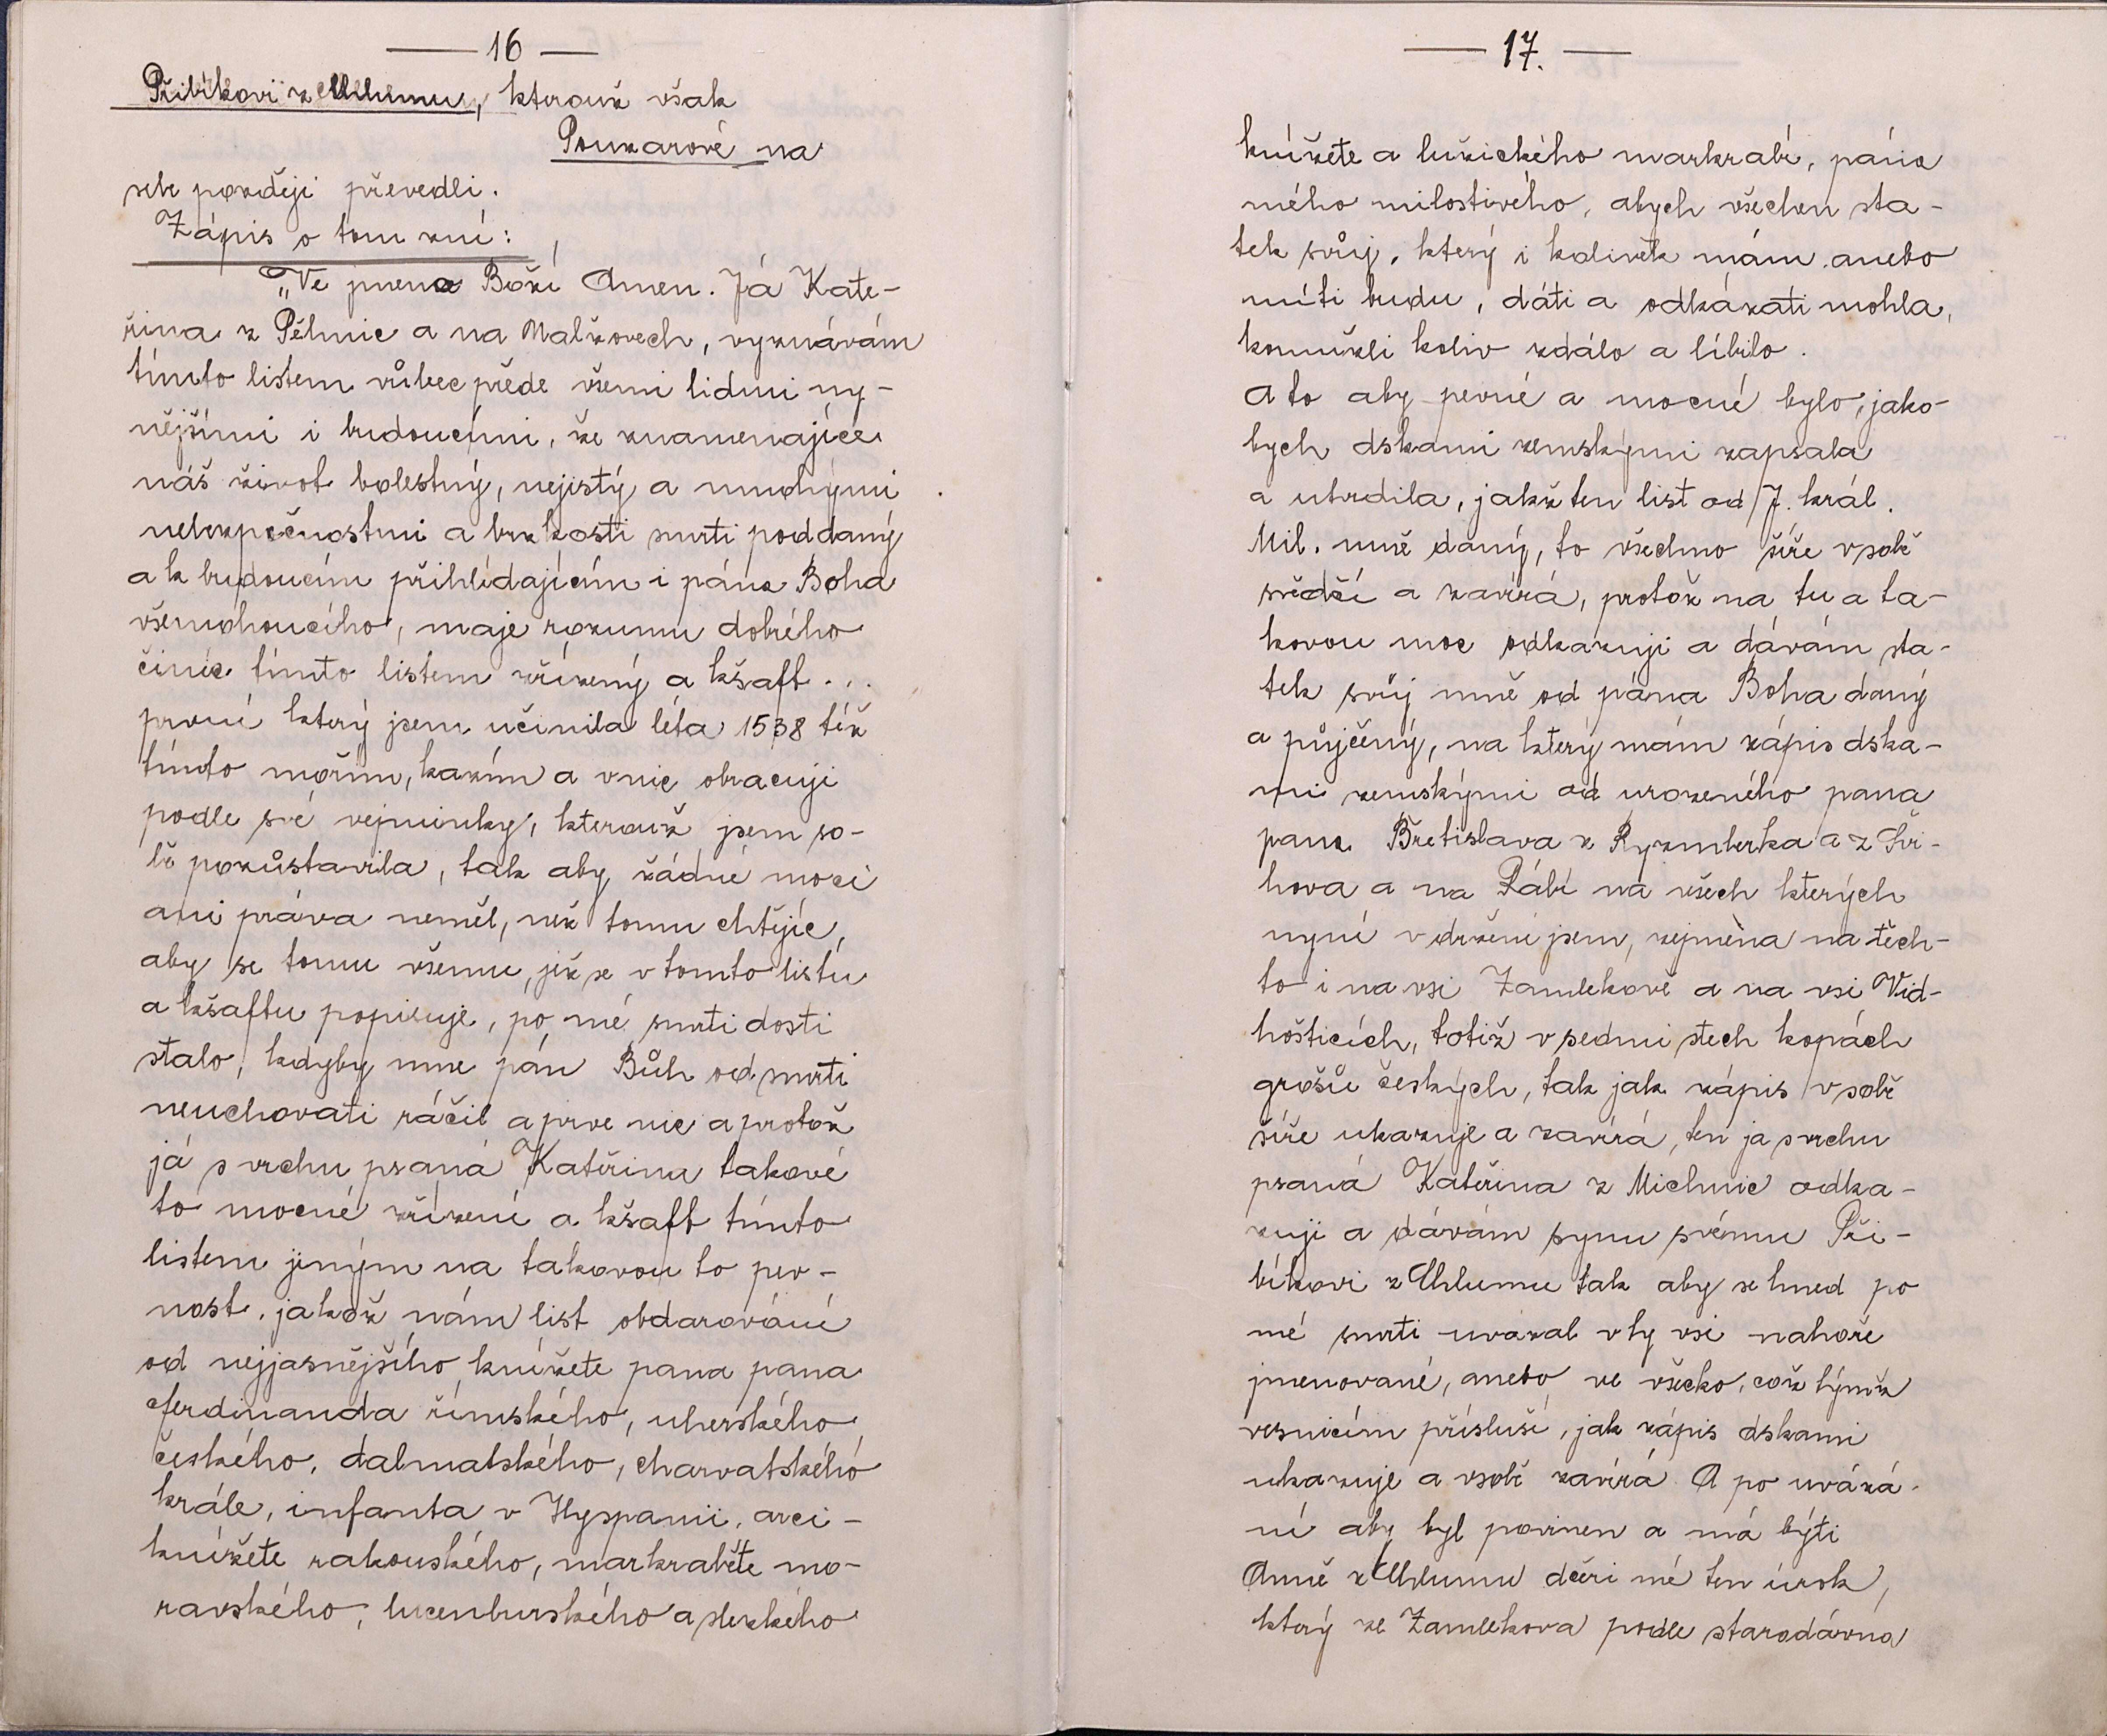 — 16 —
Přibíkovi z Chlumu, kterouž však
Poukarové na
sebe později převedli.
Zápis o tom zní:
„Ve jmeno Boží Amen. Já Kate-
řina z Pělnic a na Malžovech, vyznávám
tímto listem vůbec přede všemi lidmi ny-
nějšími i budoucími, že znamenajíce
náš život bolestný, nejistý a mnohými
nebezpečnostmi a brzkosti smrti poddaný
a k budoucím přihlídajícím i pána Boha
všemohoucího, maje rozumu dobrého
činíc tímto listem zřízený a kšaft...
první který jsem učinila léta 1538 též
tímto mořím, kazím a vnic obracuji
podle své vejminky, kterouž jsem so-
bě pozůstavila, tak aby žádné moci
ani práva neměl, než tomu chtějíc,
aby se tomu všemu, jež se v tomto listu
a kšaftu popisuje, po mé smrti dosti
stalo, kdyby mne pán Bůh od smrti
neuchovati ráčil a prve nic a protož
já svrchu psaná Kateřina takové
to mocné zřízení a kšaft tímto
listem jiným na takovou to pev-
nost, jakož mám list obdarování
od nejjasnějšího knížete pana pana
Ferdinanda římského, uherského
českého, dalmatského, charvatského
krále, infanta v Hyspanii, arci-
knížete rakouského, markraběte mo-
ravského, lucenburského a slezkého
— 17. —
knížete a lužického markrabí, pána
mého milostivého, abych všechen sta-
tek svůj, který i kolivěk mám anebo
míti budu, dáti a odkázati mohla,
komužli koliv zdálo a líbilo.
A to aby pevné a mocné bylo, jako-
bych dskami zemskými zapsala
a utvrdila, jakž ten list od J. král.
Mil. mně daný, to všechno šíře v sobě
svědčí a zavírá, protož na tu a ta-
kovou moc odkazuji a dávám sta-
tek svůj mně od pána Boha daný
a půjčený, na který mám zápis dska-
mi zemskými od urozeného pana
pana Břetislava z Ryzmberka a z Švi-
hova a na Rábí na všech kterých
nyní v držení jsem, zejmèna na těch-
to i na vsi Zamlekově a na vsi Vid-
hošticích, totiž v sedmi stech kopách
grošů českých, tak jak zápis v sobě
šíře ukazuje a zavírá, ten ja svrchu
psaná Kateřina z Michnic odka-
zuji a dávám synu svému Při-
bíkovi z Chlumu tak aby se hned po
mé smrti uvázal v ty vsi nahoře
jmenované, anebo ve všecko, což týmž
vesnicím přísluší, jak zápis dskami
ukazuje a vsobě zavírá. A po uvázá-
ní aby byl povinen a má býti
Anně z Chlumu dceři mé ten úrok,
který ze Zamlekova podle starodávna